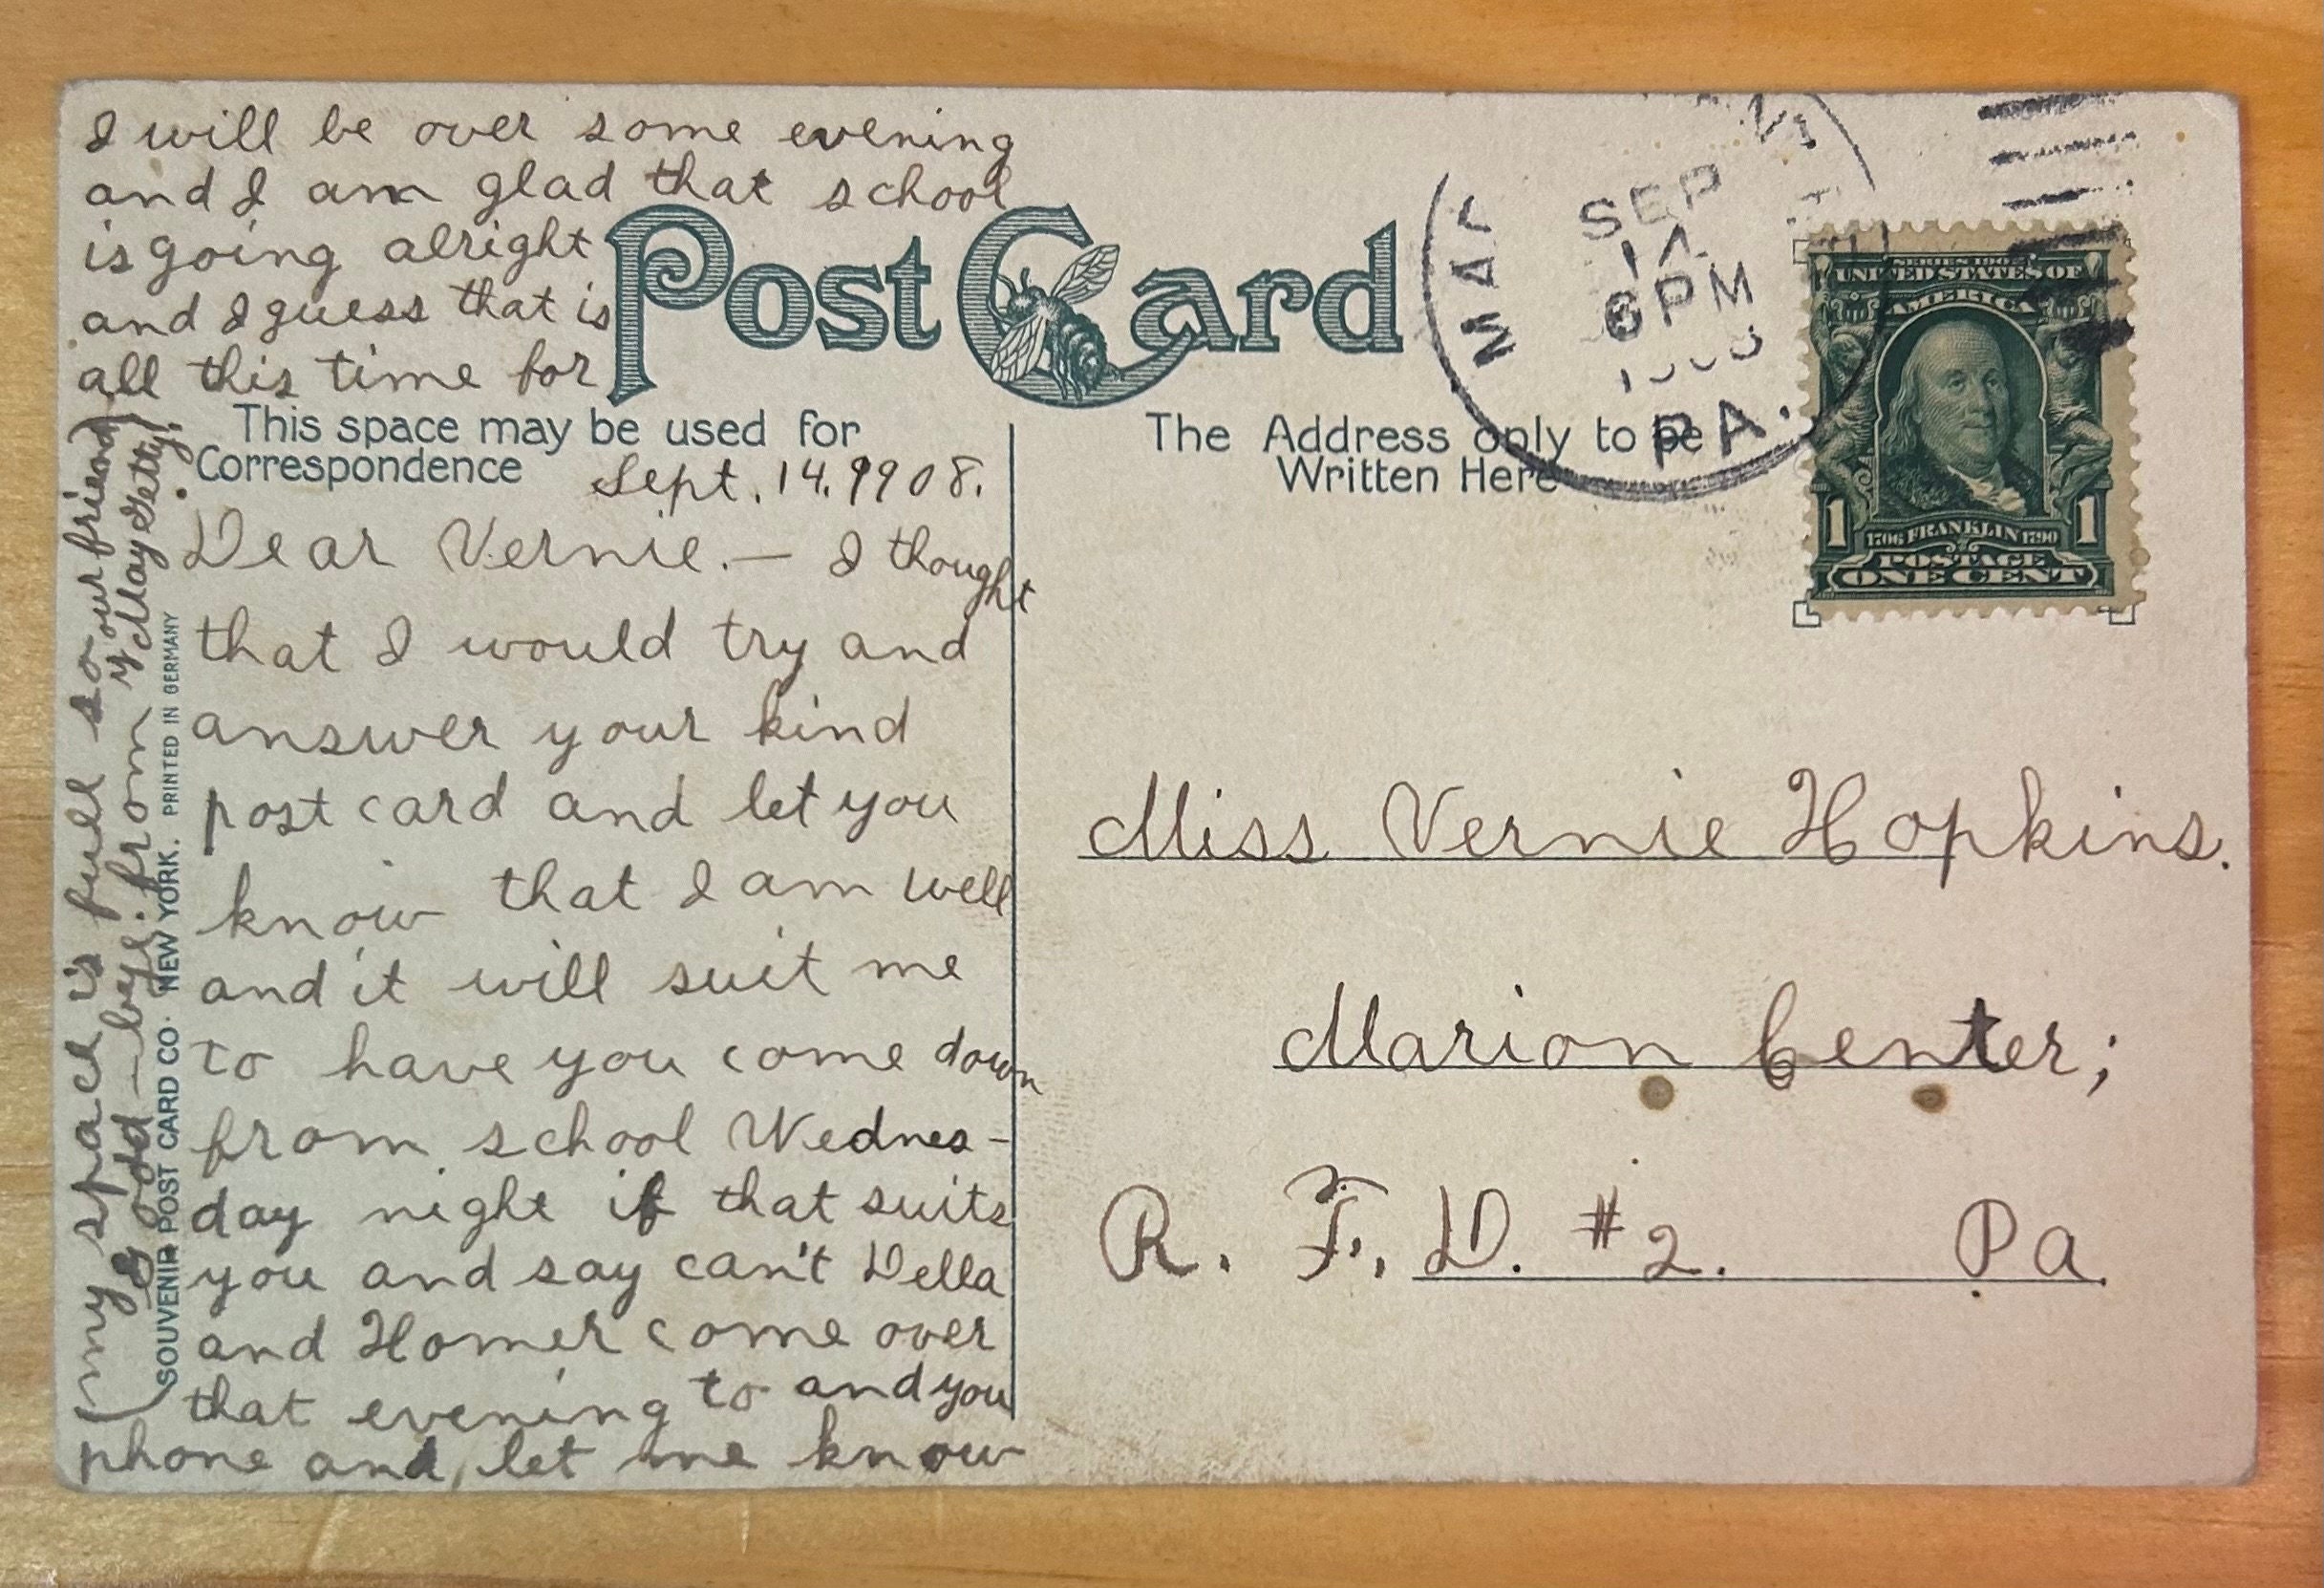 Post Card
This space may be used for
Correspondence
Sept. 14. 1908.
Dear Vernie. — I thought
that I would try and
answer your kind
post card and let you
know that I am well
and it will suit me
to have you come down
from school Wednes-
day night if that suits
you and say can't Della
and Homer come over
that evening to and you
phone and let me know
I will be over some evening
and I am glad that school
is going alright
and I guess that is
all this time for
my space is full so
good-bye. from your friend
May Getty.
SOUVENIR POST CARD CO. NEW YORK. PRINTED IN GERMANY
The Address only to be
Written Here
SEP
14
6 PM
1908
PA.
UNITED STATES OF
AMERICA
1 1
1706 FRANKLIN 1790
POSTAGE
ONE CENT
Miss Vernie Hopkins.
Marion Center;
R. F. D. #2. Pa.